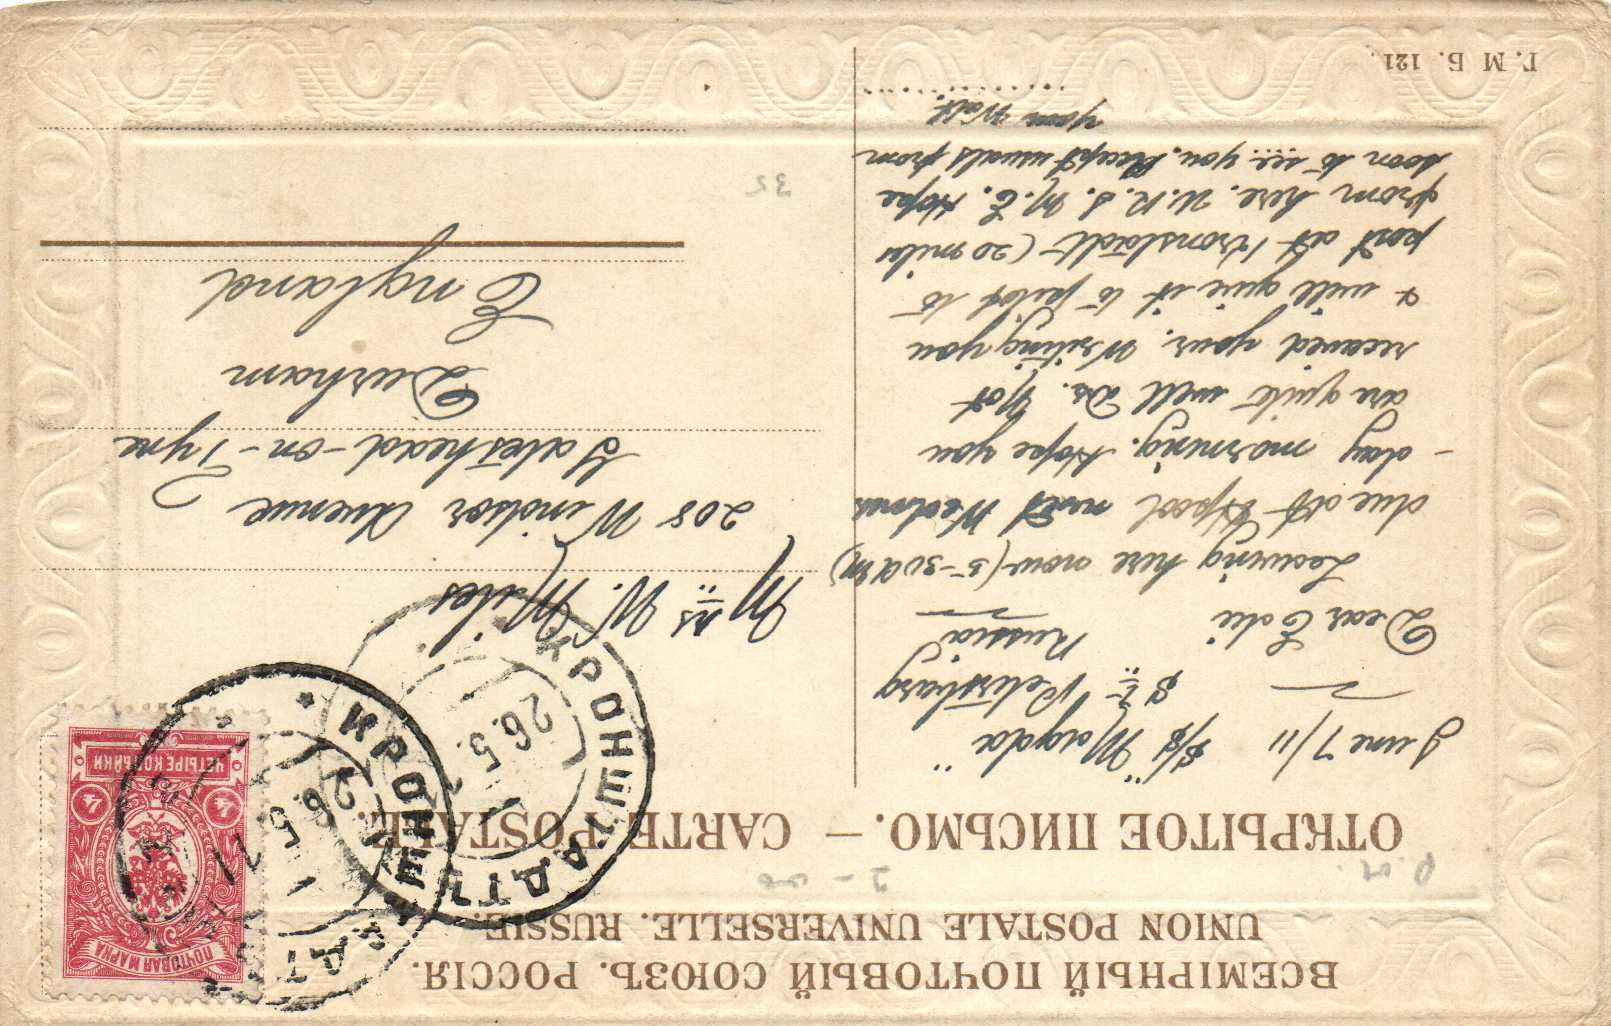 ВСЕМІРНЫЙ ПОЧТОВЫЙ СОЮЗЪ. РОССІЯ.
UNION POSTALE UNIVERSELLE. RUSSIE.
ОТКРЫТОЕ ПИСЬМО. — CARTE POSTALE.
June 7/11 S/S "Magda"
St Petersburg
Russia
Dear Edie
Leaving here now (5-30 am)
due at H'pool next Wednes
-day morning. Hope you
are quite well Ds. Not
received your. Writing you
& will give it to pilot to
post at Kronstadt (20 miles
from here. W.R.S. M.E. Hope
soon to see you. Accept usuals from
yours Walt.
Mrs W. Miles
208 Windsor Avenue
Gateshead-on-Tyne
Durham
England
ПОЧТОВАЯ МАРКА
4 4
ЧЕТЫРЕ КОПѢЙКИ
КРОНШТАДТЪ
26.5.11
КРОНШТАДТЪ
26.5
35
Г. М. Б. 121.